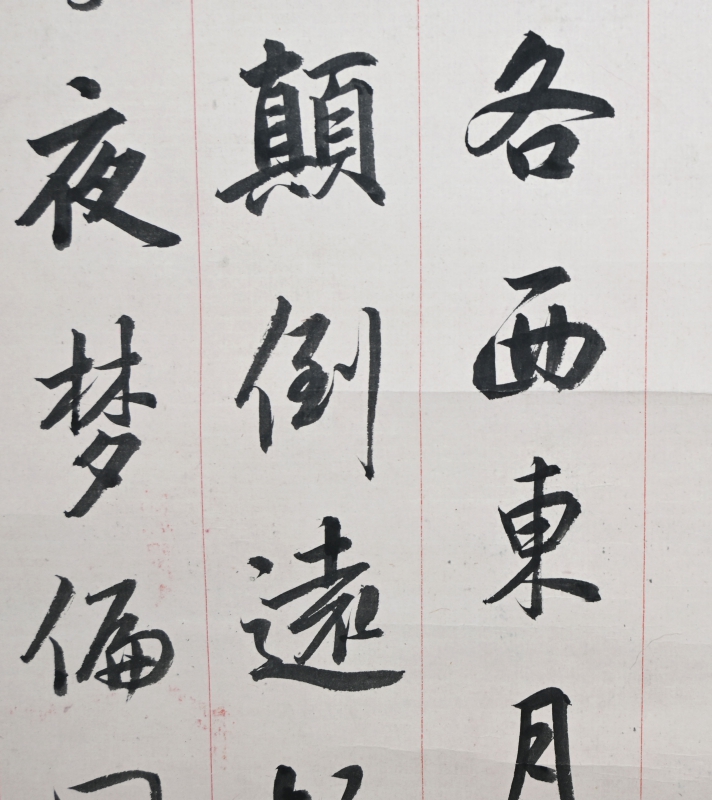 各西東月
顛倒遠
夜梦偏